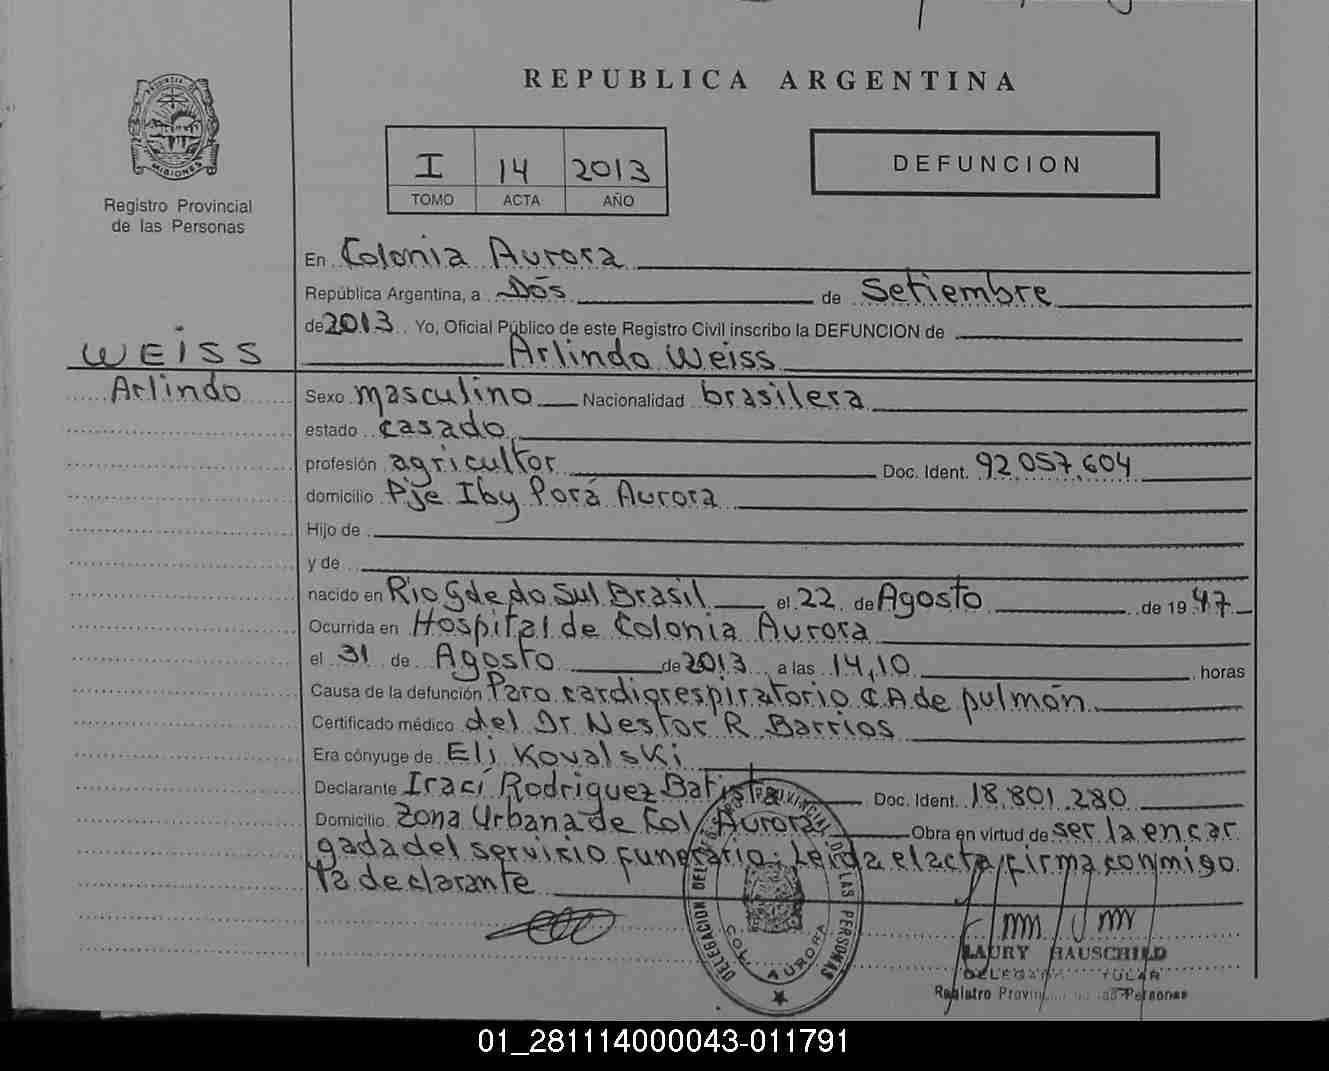 REPUBLICA ARGENTINA
PROVINCIA DE
MISIONES
Registro Provincial
de las Personas
I 14 2013
TOMO ACTA AÑO
DEFUNCION
En Colonia Aurora
República Argentina, a Dós de Setiembre
de 2013. Yo, Oficial Público de este Registro Civil inscribo la DEFUNCION de
Arlindo Weiss
WEISS
Arlindo
Sexo masculino Nacionalidad brasilera
estado casado
profesión agricultor Doc. Ident. 92.057.604
domicilio Pje Iby Porá Aurora
Hijo de
y de
nacido en Rio Gde do Sul Brasil el 22 de Agosto de 1947
Ocurrida en Hospital de Colonia Aurora
el 31 de Agosto de 2013 a las 14,10 horas
Causa de la defunción Paro cardiorespiratorio C.A de pulmón
Certificado médico del Dr Nestor R Barrios
Era cónyuge de Eli Kovalski
Declarante Iraci Rodriguez Batista Doc. Ident. 18.801.280
Domicilio Zona Urbana de Col Aurora Obra en virtud de ser la encar
gada del servicio funerario. Leida el acta, firma conmigo
la declarante
DELEGACION DEL REGISTRO PROVINCIAL DE LAS PERSONAS
COL. AURORA
LAURY HAUSCHILD
DELEGADA TITULAR
Registro Provincial de las Personas
01_281114000043-011791